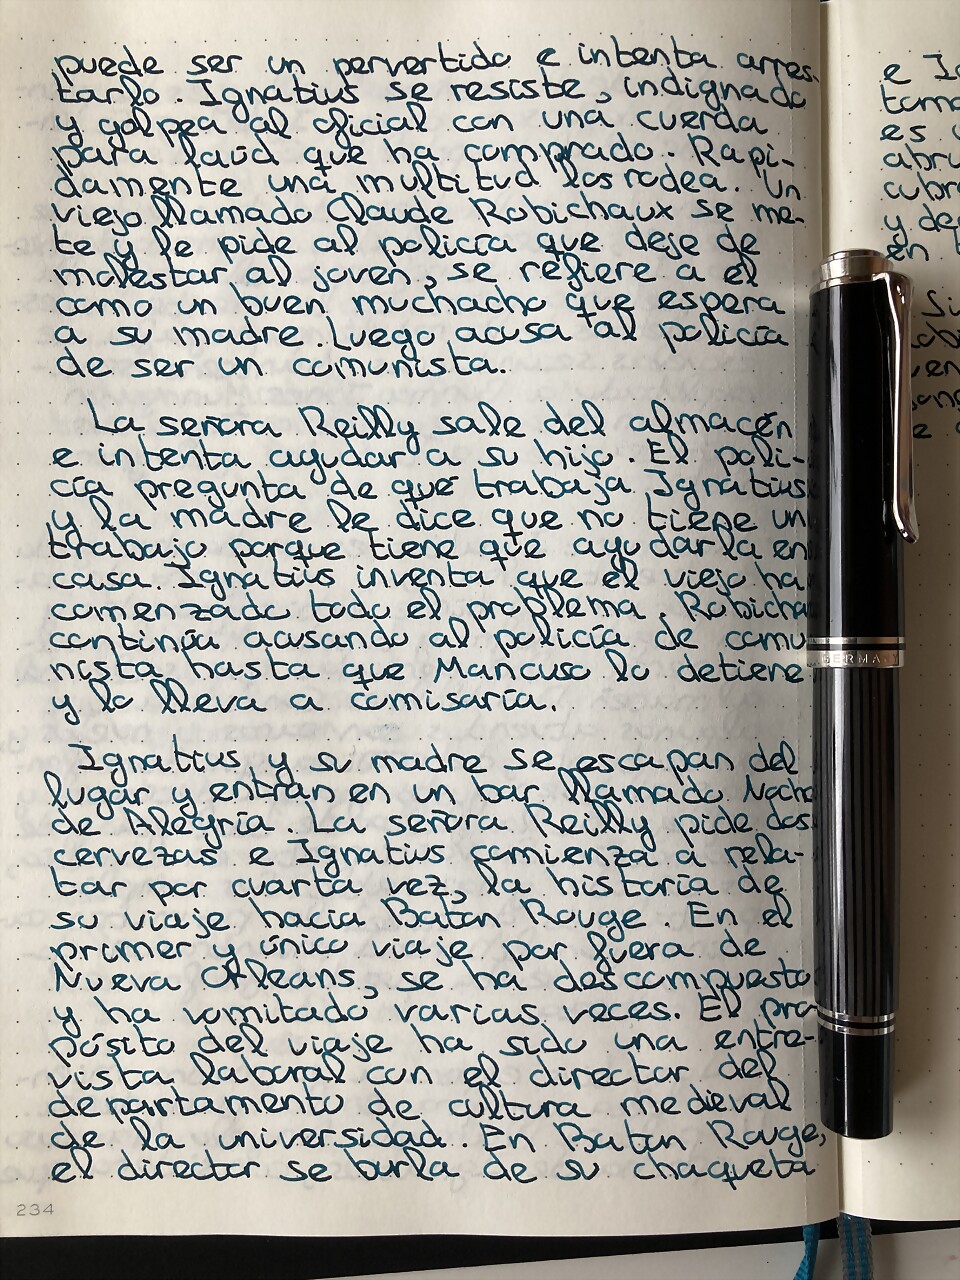 puede ser un pervertido e intenta arres-
tarlo. Ignatius se resiste, indignado
y golpea al oficial con una cuerda
para laúd que ha comprado. Rapi-
damente una multitud los rodea. Un
viejo llamado Claude Robichaux se me-
te y le pide al policía que deje de
molestar al joven, se refiere a él
como un buen muchacho que espera
a su madre. Luego acusa al policía
de ser un comunista.
La señora Reilly sale del almacén
e intenta ayudar a su hijo. El poli-
cía pregunta de qué trabaja Ignatius
y la madre le dice que no tiene un
trabajo porque tiene que ayudarla en
casa. Ignatius inventa que el viejo ha
comenzado todo el problema. Robicha
continúa acusando al policía de comu
nista hasta que Mancuso lo detiene
y lo lleva a comisaría.
Ignatius y su madre se escapan del
lugar y entran en un bar llamado Noche
de Alegría. La señora Reilly pide dos
cervezas e Ignatius comienza a rela-
tar por cuarta vez, la historia de
su viaje hacia Baton Rouge. En el
primer y único viaje por fuera de
Nueva Orleans, se ha descompuesto
y ha vomitado varias veces. El pro
pósito del viaje ha sido una entre-
vista laboral con el director del
departamento de cultura medieval
de la universidad. En Baton Rouge,
el director se burla de su chaqueta
234
e Ig
toma
es
abru
cubre
y de
en
Si
GERMANY